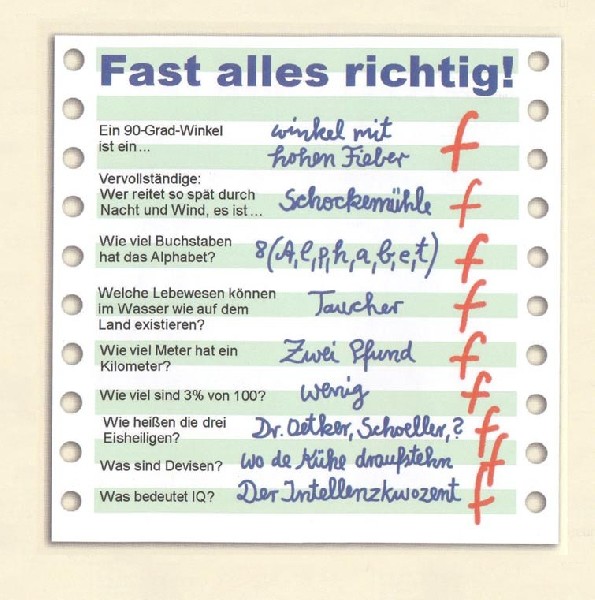 Fast alles richtig!
Ein 90-Grad-Winkel
ist ein...
winkel mit
hohen Fieber
f
Vervollständige:
Wer reitet so spät durch
Nacht und Wind, es ist...
Schockemühle
f
Wie viel Buchstaben
hat das Alphabet?
8(A,l,p,h,a,b,e,t)
f
Welche Lebewesen können
im Wasser wie auf dem
Land existieren?
Taucher
f
Wie viel Meter hat ein
Kilometer?
Zwei Pfund
f
Wie viel sind 3% von 100?
wenig
f
Wie heißen die drei
Eisheiligen?
Dr. Oetker, Schoeller,?
f
Was sind Devisen?
wo de Kühe draufstehn
f
Was bedeutet IQ?
Der Intellenzkwozent
f